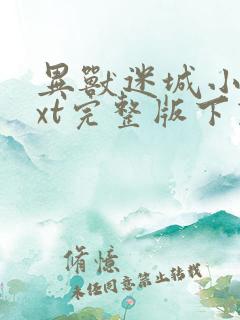 異獸迷城小
xt完整版下
脩憶
未经同意禁止转载